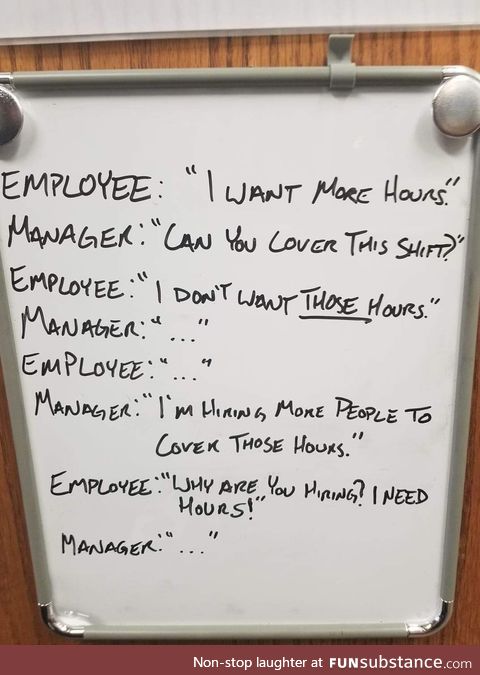 EMPLOYEE: "I WANT MORE HOURS."
MANAGER: "CAN YOU COVER THIS SHIFT?"
EMPLOYEE: "I DON'T WANT THOSE HOURS."
MANAGER: "..."
EMPLOYEE: "..."
MANAGER: "I'M HIRING MORE PEOPLE TO
COVER THOSE HOURS."
EMPLOYEE: "WHY ARE YOU HIRING? I NEED
HOURS!"
MANAGER: "..."
Non-stop laughter at FUNsubstance.com